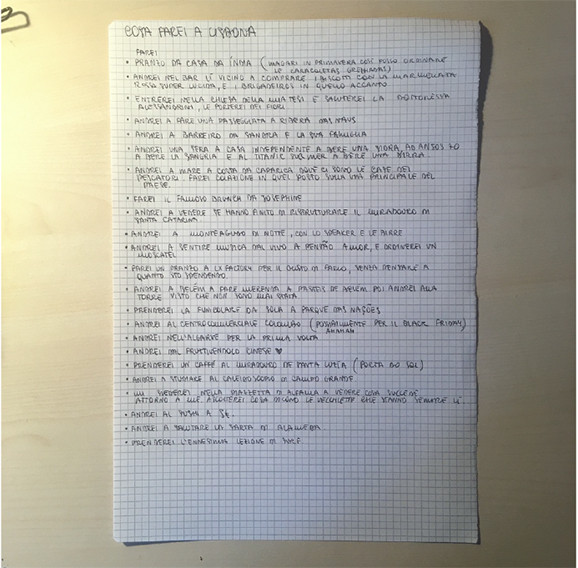 COSA FAREI A LISBONA
FAREI
• PRANZO DA CASA DA ÍNDIA (MAGARI IN PRIMAVERA COSÌ POSSO ORDINARE
LE CARACOLETAS GRELHADAS)
• ANDREI NEL BAR LÌ VICINO A COMPRARE I BISCOTTI CON LA MARMELLATA
ROSSA SUPER LUCIDA, E I BRIGADEIROS IN QUELLO ACCANTO
• ENTREREI NELLA CHIESA DELLA MIA TESI E SALUTEREI LA DOTTORESSA
ALESSANDRINI, LE PORTEREI DEI FIORI
• ANDREI A FARE UNA PASSEGGIATA A RIBEIRA DAS NAUS
• ANDREI A BARREIRO DA SANDRA E LA SUA FAMIGLIA
• ANDREI UNA SERA A CASA INDEPENDENTE A BERE UNA BIRRA, AD ANJOS 70
A BERE LA SANGRIA E AL TITANIC SUR MER A BERE UNA BIRRA.
• ANDREI A MARE A COSTA DA CAPARICA DOVE CI SONO LE CASE DEI
PESCATORI. FAREI COLAZIONE IN QUEL POSTO SULLA VIA PRINCIPALE DEL
PAESE.
• FAREI IL FAMOSO BRUNCH DA JOSEPHINE
• ANDREI A VEDERE SE HANNO FINITO DI RISTRUTTURARE IL MIRADOURO DI
SANTA CATARINA
• ANDREI A MONTEAGUDO DI NOTTE, CON LO SPEAKER E LE BIRRE
• ANDREI A SENTIRE MUSICA DAL VIVO A PENSÃO AMOR, E ORDINEREI UN
MOSCATEL
• FAREI UN PRANZO A LX FACTORY PER IL GUSTO DI FARLO, SENZA PENSARE A
QUANTO STO SPENDENDO
• ANDREI A BELÉM A FARE MERENDA A PASTEIS DE BELÉM POI ANDREI ALLA
TORRE VISTO CHE NON SONO MAI STATA
• PRENDEREI LA FUNICOLARE DA SOLA A PARQUE DAS NAÇÕES
• ANDREI AL CENTRO COMMERCIALE COLOMBO (POSSIBILMENTE PER IL BLACK FRIDAY)
AHAHAH
• ANDREI NELL'ALGARVE PER LA PRIMA VOLTA
• ANDREI DAL FRUTTIVENDOLO CINESE ♥
• PRENDEREI UN CAFFÈ AL MIRADOURO DE SANTA LUZIA (PORTA DO SOL)
• ANDREI A STUDIARE AL CALEIDOSCOPIO DI CAMPO GRANDE
• MI SIEDEREI NELLA PIAZZETTA DI ALFAMA A VEDERE COSA SUCCEDE
ATTORNO A ME. ASCOLTEREI COSA DICONO LE VECCHIETTE CHE STANNO SEMPRE LÌ.
• ANDREI AL SUSHI A
• ANDREI A SALUTARE LA SARTA DI ALAMEDA.
• PRENDEREI L'ENNESIMA LEZIONE DI SURF.